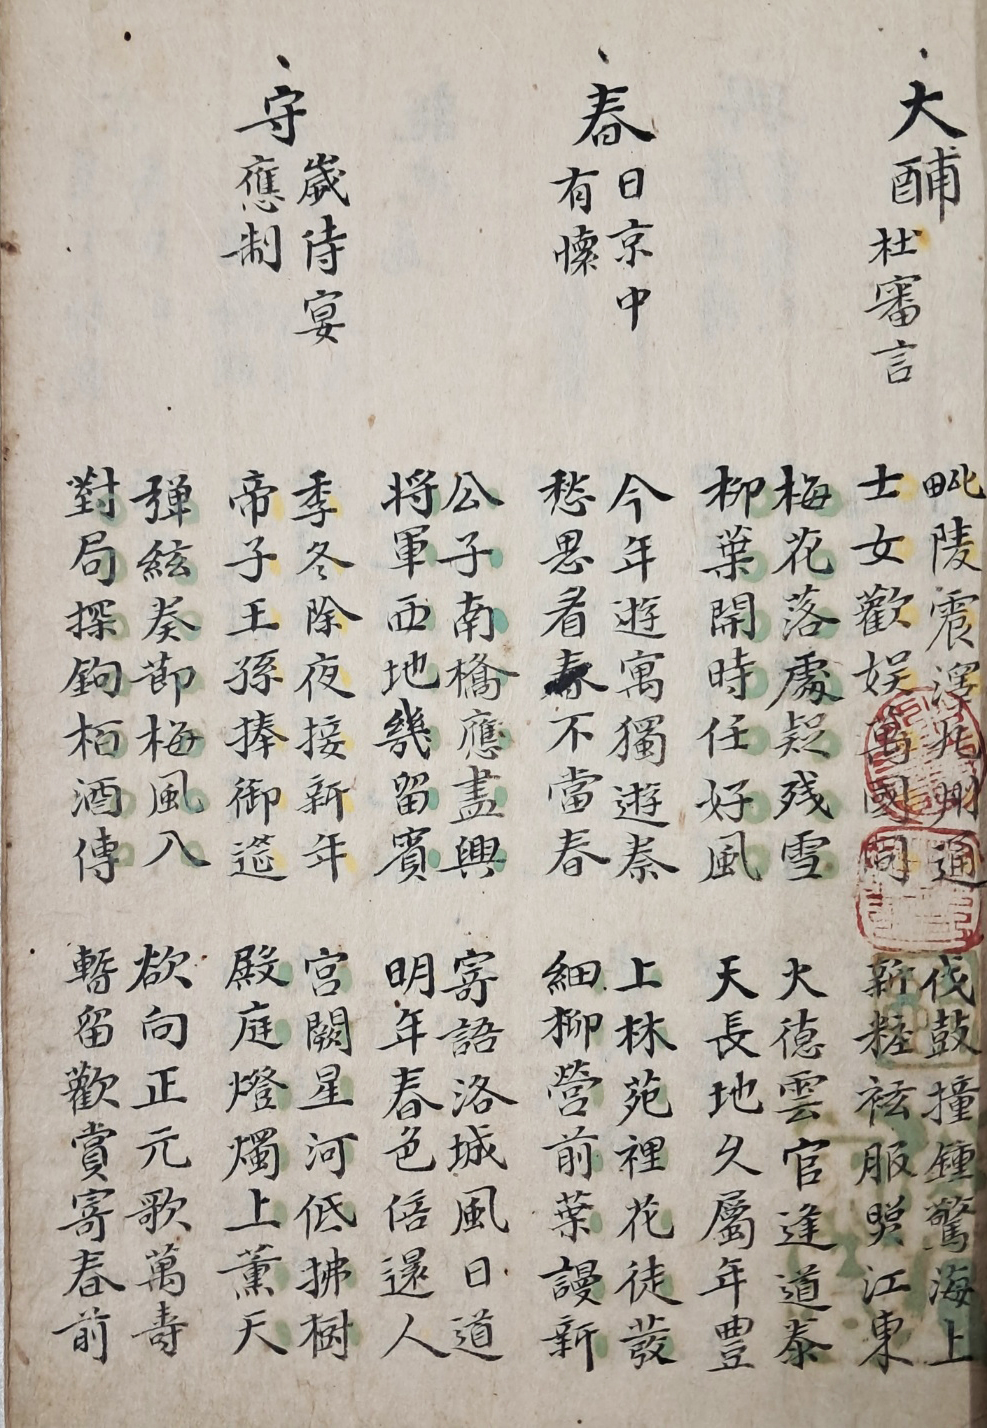 大酺 杜審言
毗陵震澤九州通
士女歡娱萬國同
伐鼓撞鍾驚海上
新粧袨服暎江東
梅花落處疑残雪
柳葉開時任好風
火德雲官逢道泰
天長地久屬年豊
春日京中
有懷
今年遊寓獨遊秦
愁思看春不當春
上林苑裡花徒發
細柳營前葉謾新
公子南橋應盡興
將軍西地幾留賓
寄語洛城風日道
明年春色倍還人
守歲侍宴
應制
季冬除夜接新年
帝子王孫捧御筵
宮闕星河低拂樹
殿庭燈燭上薰天
彈絃奏節梅風入
對局探鉤栢酒傳
欲向正元歌萬壽
暫留歡賞寄春前